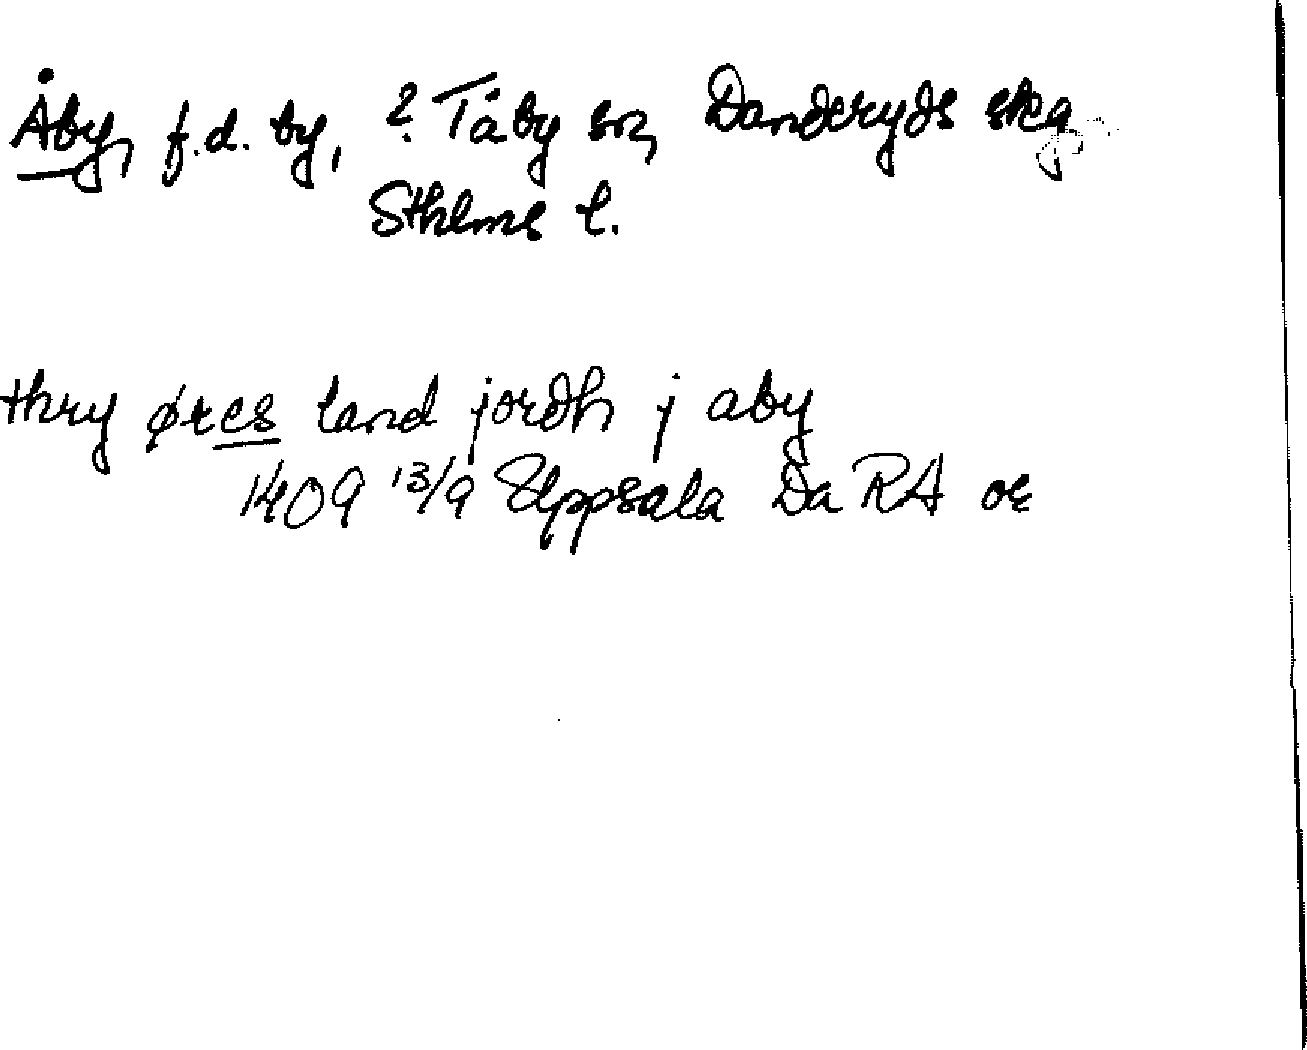 Åby, f.d. by, ? Täby sn, Danderyds skg
Sthlms l.
thry øres land jordh j aby
1409 13/9 Uppsala Da RA or